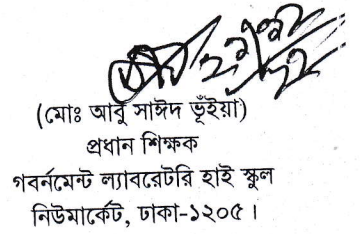 (মোঃ আবু সাঈদ ভূঁইয়া)
প্রধান শিক্ষক
গবর্নমেন্ট ল্যাবরেটরি হাই স্কুল
নিউমার্কেট, ঢাকা-১২০৫।